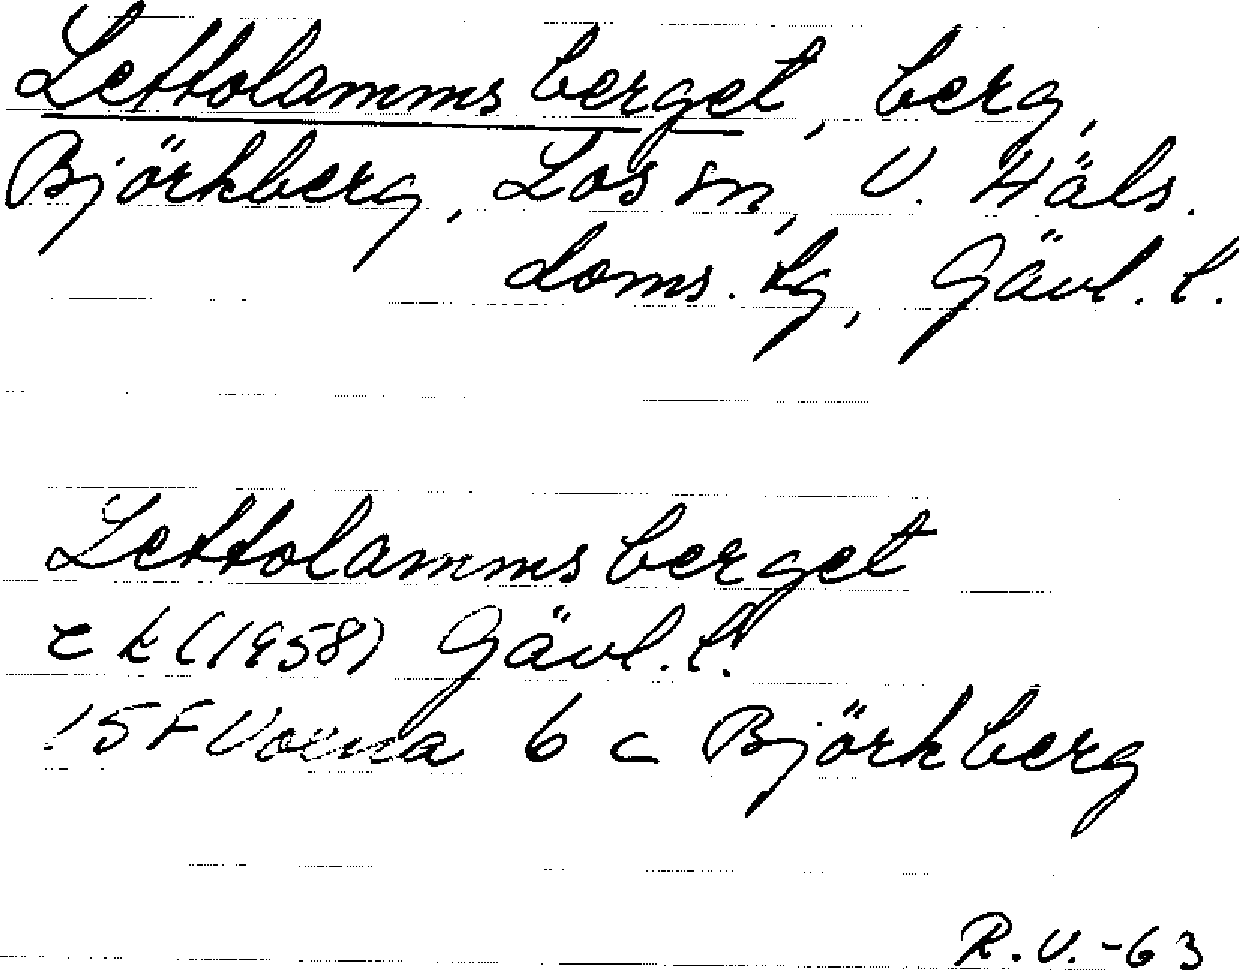 Lettolammsberget, berg,
Björkberg, Los sn, V. Häls.
doms. tg, Gävl. l.
Lettolammsberget
e k (1958) Gävl. l.
15 F Voxna 6 c Björkberg
R.V.-63